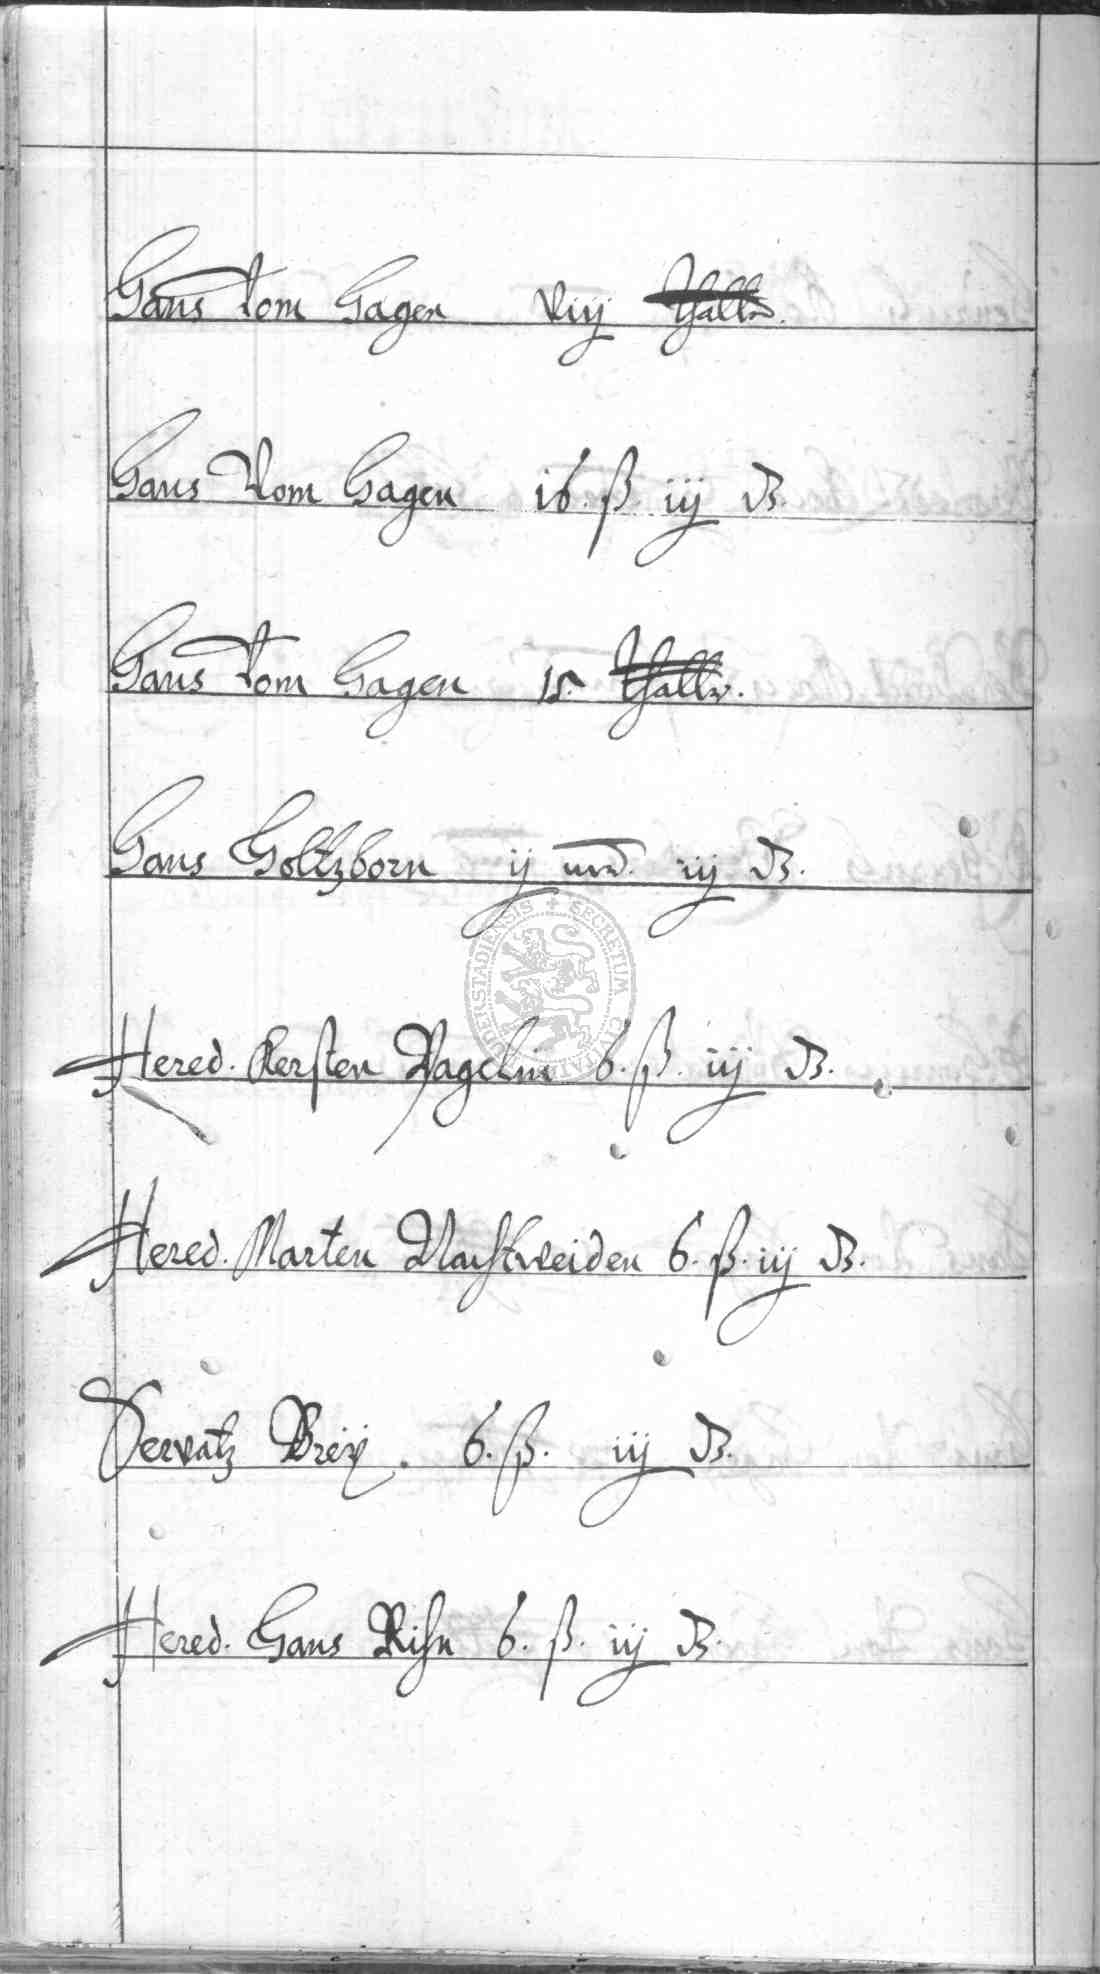 Hans vom Hagen viij thaller.
Hans Vom Hagen 16. ß. iij ₰.
Hans vom Hagen 15. thaller.
Hans Holtzborn ij mrd. iij ₰.
SECRETUM CIVITATIS DUDERSTADIENSIS
Hered. Kersten 6. ß. iij ₰.
Hered. Marten Nachtweiden 6. ß. iij ₰.
Servatz Brey. 6. ß. iij ₰.
Hered. Hans 6. ß. iij ₰.